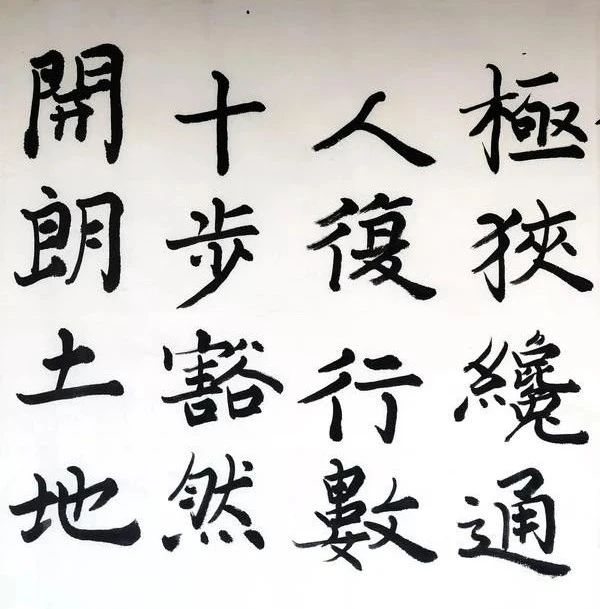 極狹纔通
人復行數
十步豁然
開朗土地